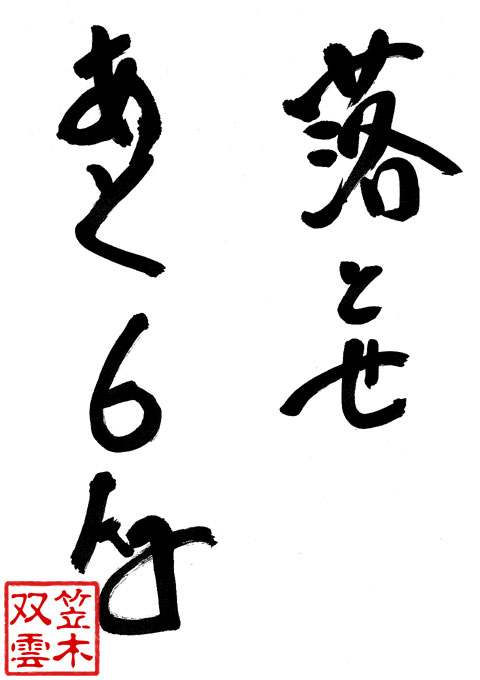 落とせ
あと6kg
笠木
双雲